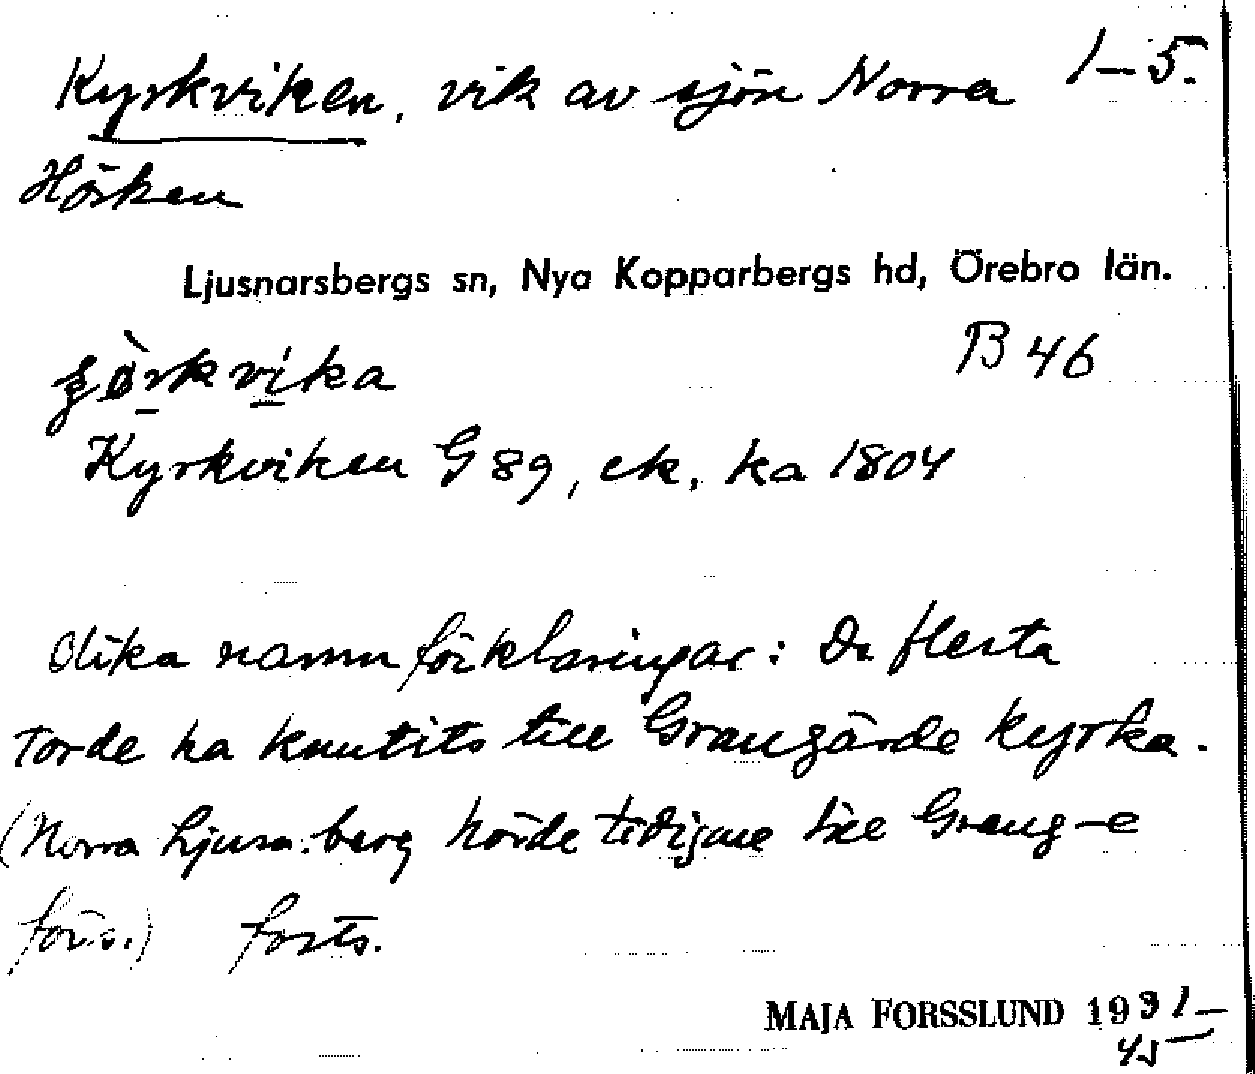 Kyrkviken, vik av sjön Norra 1-5.
Hörken
Ljusnarsbergs sn, Nya Kopparbergs hd, Örebro län.
B 46
Kyrkviken G 89, ek. ka 1804
Olika namnförklaringar: De flesta
torde ha knutits till Grangärde kyrka.
(Norra Ljusn.berg hörde tidigare till Grang-e
förs.) forts.
MAJA FORSSLUND 1931-
45